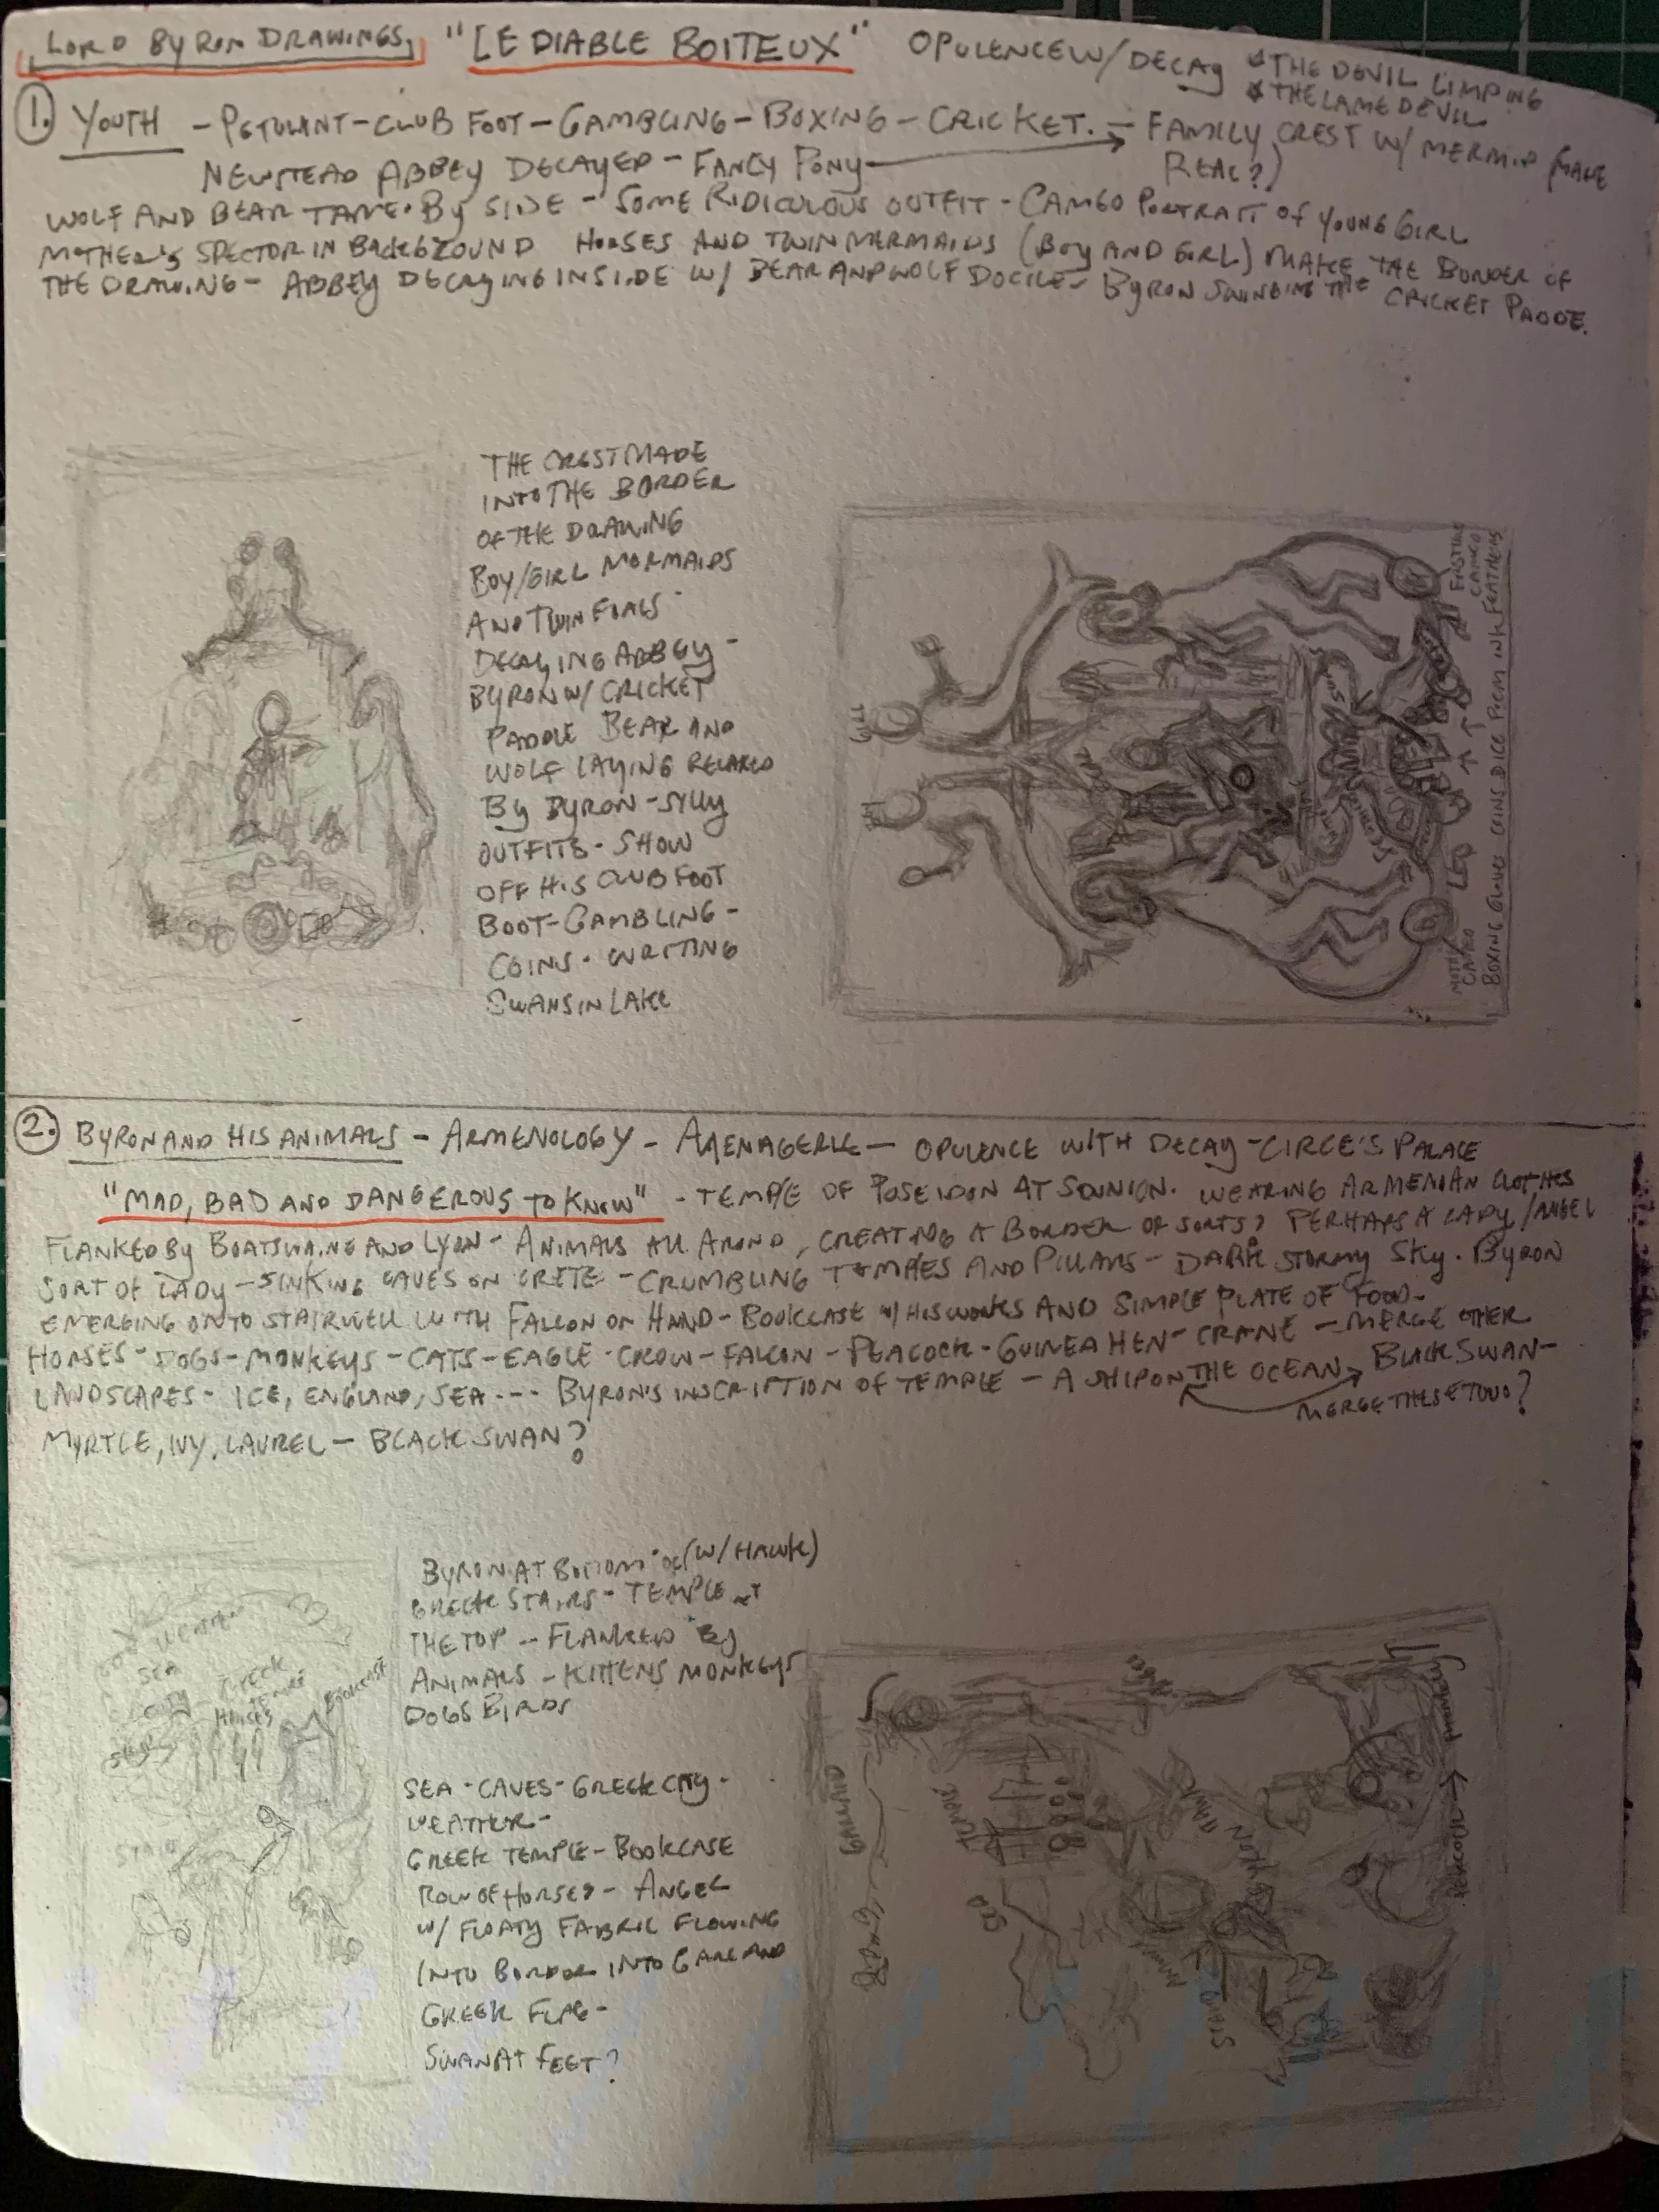 LORD BYRON DRAWINGS, "LE DIABLE BOITEUX" OPULENCE W/ DECAY
THE DEVIL LIMPING
THE LAME DEVIL
1. YOUTH - PETULANT - CLUB FOOT - GAMBLING - BOXING - CRICKET. - FAMILY CREST W/ MERMAID (MAKE
NEWSTEAD ABBEY DECAYED - FANCY PONY REAL?)
WOLF AND BEAR TAME. BY SIDE - SOME RIDICULOUS OUTFIT - CAMEO PORTRAIT OF YOUNG GIRL
MOTHER'S SPECTOR IN BACKGROUND HORSES AND TWIN MERMAIDS (BOY AND GIRL) MAKE THE BORDER OF
THE DRAWING - ABBEY DECAYING INSIDE W/ BEAR AND WOLF DOCILE - BYRON SWINGING THE CRICKET PADDE.
THE CREST MADE
INTO THE BORDER
OF THE DRAWING
BOY/GIRL MORMAIDS
AND TWIN FOALS
DECAYING ABBEY -
BYRON W/ CRICKET
PADDLE BEAR AND
WOLF LAYING RELAXED
BY BYRON - SILLY
OUTFITS - SHOW
OFF HIS CLUB FOOT
BOOT - GAMBLING -
COINS - WRITING
SWANS IN LAKE
LEO
CAMEO
CAMEO
BOXING GLOVES COINS DICE POEM INK FEATHERS
2. BYRON AND HIS ANIMALS - ARMENOLOGY - MENAGERIE - OPULENCE WITH DECAY - CIRCE'S PALACE
"MAD, BAD AND DANGEROUS TO KNOW" - TEMPLE OF POSEIDON AT SOUNION. WEARING ARMENIAN CLOTHES
FLANKED BY BOATSWAINE AND LYON - ANIMALS ALL AROUND, CREATING A BORDER OF SORTS? PERHAPS A LADY/ANGEL
SORT OF LADY - SINKING CAVES ON CRETE - CRUMBLING TEMPLES AND PILLARS - DARK STORMY SKY. BYRON
EMERGING ONTO STAIRWELL WITH FALCON ON HAND - BOOKCASE W/ HIS WORKS AND SIMPLE PLATE OF FOOD -
HORSES - DOGS - MONKEYS - CATS - EAGLE - CROW - FALCON - PEACOCK - GUINEA HEN - CRANE - MERGE OTHER
LANDSCAPES - ICE, ENGLAND, SEA --- BYRON'S INSCRIPTION OF TEMPLE - A SHIP ON THE OCEAN BLACK SWAN -
MERGE THESE TWO?
MYRTLE, IVY, LAUREL - BLACK SWAN?
BYRON AT BOTTOM OF (W/ HAWK)
GREEK STAIRS - TEMPLE AT
THE TOP - FLANKED BY
ANIMALS - KITTENS MONKEYS
DOGS BIRDS
SEA - CAVES - GREEK CITY -
WEATHER -
GREEK TEMPLE - BOOKCASE
ROW OF HORSES - ANGEL
W/ FLOATY FABRIC FLOWING
INTO BORDER INTO GARLAND
GREEK FLAG -
SWAN AT FEET?
WEATHER
SEA
CITY
GREEK
HORSES
BOOKCASE
STAIRS
GARLAND
TEMPLE
SEA
HAWK
BYRON
STAIRS
PEACOCK
MONKEY